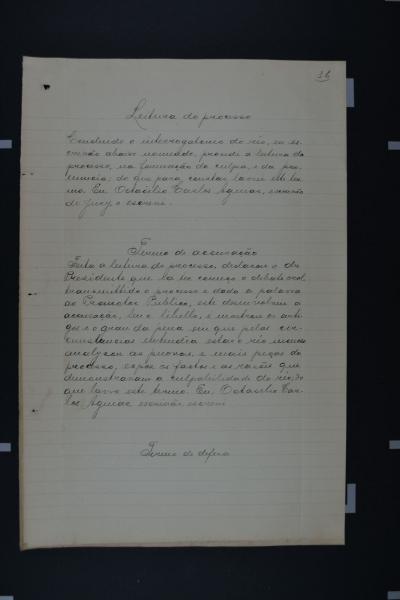 Leitura do processo
Concluido o interrogatorio do réo, eu es-
crivão abaixo nomeado, procedi a leitura do
processo, na formação da culpa, e da pro-
nuncia; do que para constar lavro este ter-
mo. Eu, Octacilio Carlos Aguiar, escrivão
do Jury o escrevi.
Termo de accusação
Feita a leitura do processo, declarou o dr.
Presidente que ia ter começo o debate oral
transmittido o processo e dada a palavra
ao Promotor Publico, este desenvolveu a
accusação, leu o libello, e mostrou os arti-
gos e o grau da pena em que pelas cir-
cunstancias entendia estar o réo
analysou as provas e mais peças do
processo, expoz os factos e as rasões que
demonstravam a culpabilidade do réo; do
que lavro este termo. Eu, Octacilio Car-
los Aguiar escrivão escrevi.
Termo de defesa